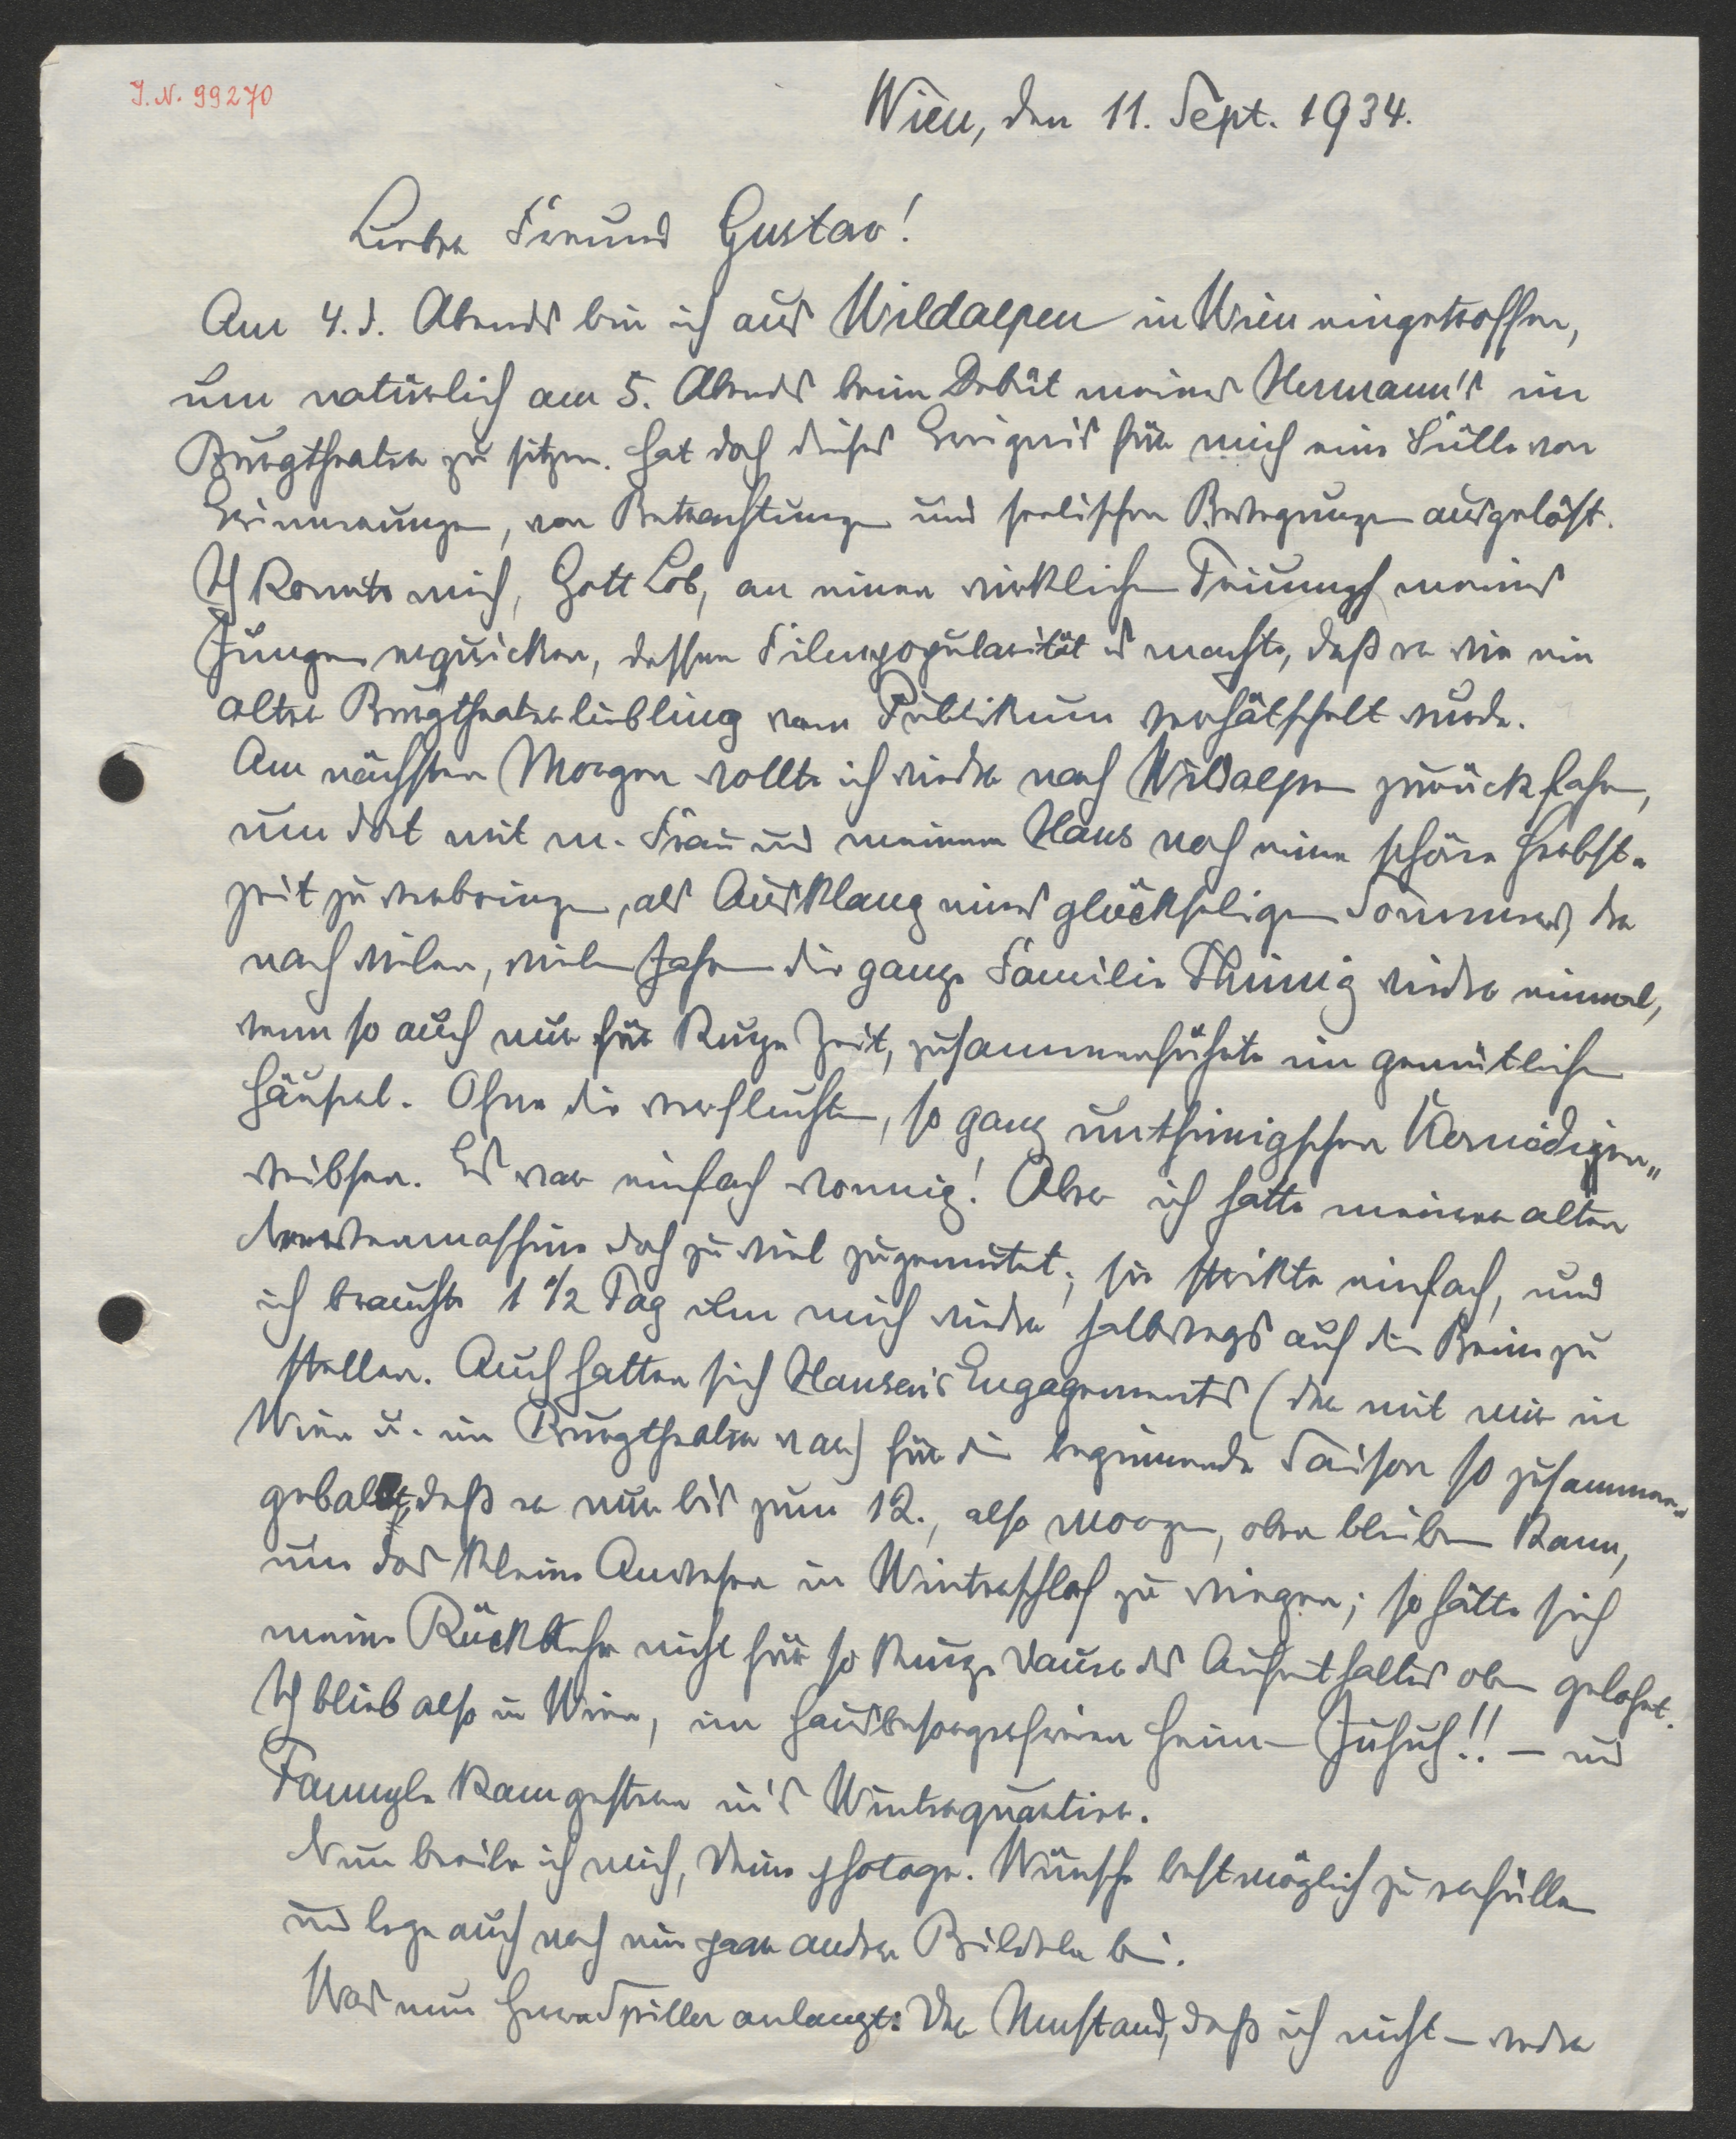 J. N. 99270
Wien, den 11. Sept. 1934.
Lieber Freund Gustav!
Am 4. d. Abends bin ich aus Wildalpen in Wien eingetroffen,
um natürlich am 5. Abends beim Debüt meines Hermann's im
Burgtheater zu sitzen. Hat doch dieses Ereignis für mich eine Fülle von
Erinnerungen, von Betrachtungen und seelischen Bewegungen ausgelöst.
Ich konnte mich, Gott Lob, an einem wirklichen Triumph meines
Jungen erquicken, dessen Filmpopularität es machte, daß er wie ein
alter Burgtheaterliebling vom Publikum verhätschelt wurde.
Am nächsten Morgen wollte ich wieder nach Wildalpen zurückfahren,
um dort mit m. Frau und meinem Hans noch eine schöne Herbst-
zeit zu verbringen, als Ausklang eines glückseligen Sommers, der
nach vielen, vielen Jahren die ganze Familie Thimig wieder einmal,
wenn so auch nur für kurze Zeit, zusammenführte im gemütlichen
Häusel. Ohne die verfluchten, so ganz unthimigschen Komödien„
weibsen. Es war einfach wonnig! Aber ich hatte meiner alten
Nervenmaschine doch zu viel zugemutet; sie streikte einfach, und
ich brauchte 1 1/2 Tag um mich wieder halbwegs auf die Beine zu
stellen. Auch hatten sich Hansen's Engagements (der mit mir in
Wien u. im Burgtheater war) für die beginnende Saison so zusammen-
geballt, daß er nur bis zum 12., also morgen, oben bleiben kann,
um das kleine Anwesen in Winterschlaf zu wiegen; so hätte sich
meine Rückkehr nicht für so kurze Dauer des Aufenthaltes oben gelohnt.
Ich blieb also in Wien, im hausbesorgerfreien Heim – Juhuh!! – und
Fannyle kam gestern in's Winterquartier.
Nun beeile ich mich, Deine photogr. Wünsche bestmöglich zu erfüllen
und lege auch noch ein paar andere Bilderln bei.
Was nun Herrn Spiller anlangt: Der Umstand, daß ich nicht – weder